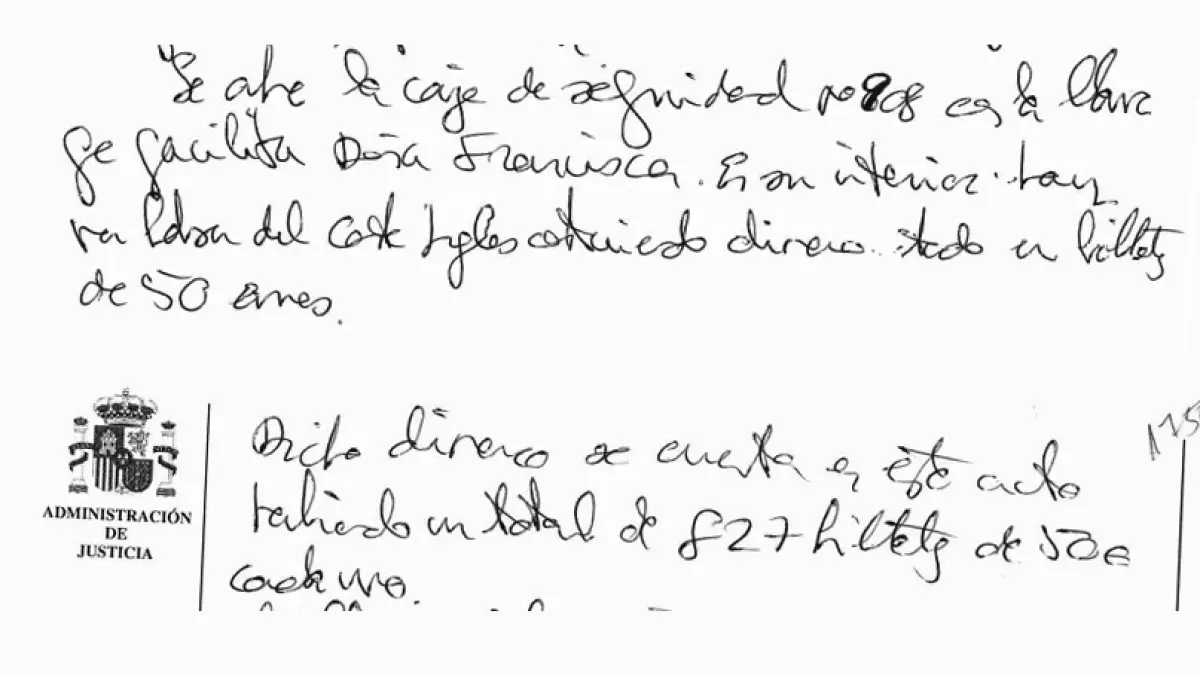 Se abre la caja de seguridad nº 908 con la llave
que facilita Doña Francisca. En su interior hay
una bolsa del Corte Ingles conteniendo dinero todo en billetes
de 50 euros.
Dicho dinero se cuenta en este acto
habiendo un total de 827 billetes de 50 €
cada uno.
ADMINISTRACIÓN
DE
JUSTICIA